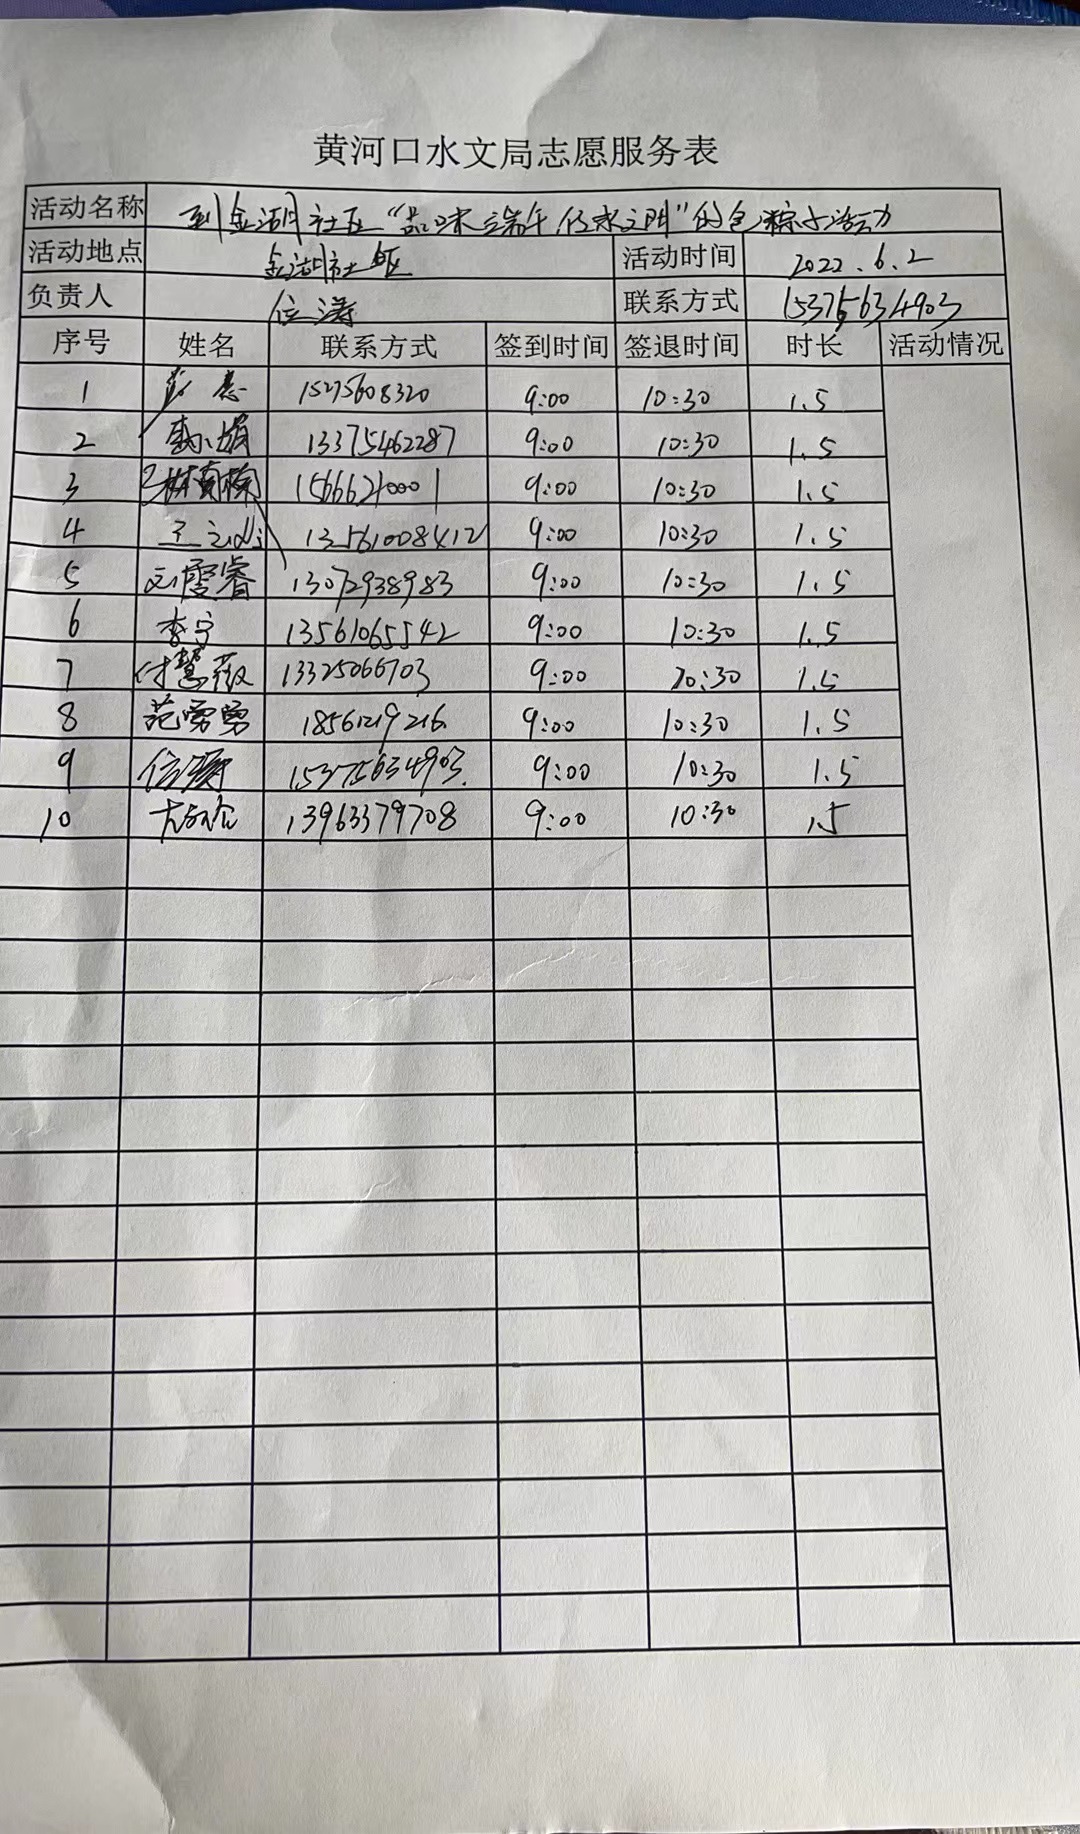 黄河口水文局志愿服务表
活动名称 到金湖社区“品味端午 传承文明”的包粽子活动
活动地点 金湖社区 活动时间 2022.6.2
负责人 位涛 联系方式 15375634903
序号 姓名 联系方式 签到时间 签退时间 时长 活动情况
1 15275608320 9:00 10:30 1.5
2 13375462287 9:00 10:30 1.5
3 15666210001 9:00 10:30 1.5
4 13561008412 9:00 10:30 1.5
5 刘霞睿 13072938983 9:00 10:30 1.5
6 李宁 13561065542 9:00 10:30 1.5
7 付慧敏 13325066703 9:00 10:30 1.5
8 范勇勇 18561219216 9:00 10:30 1.5
9 位涛 15375634903 9:00 10:30 1.5
10 13963379708 9:00 10:30 1.5